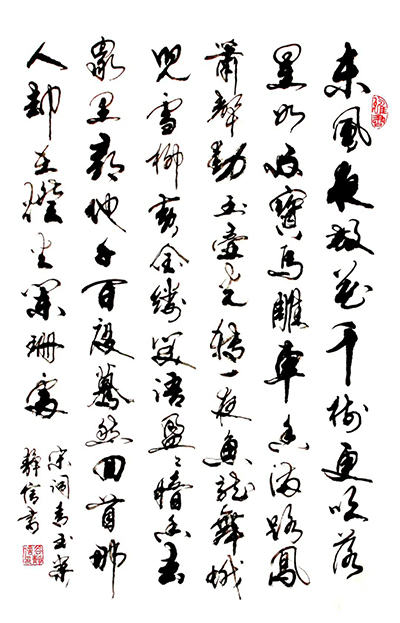 東風夜放花千樹更吹落
星如雨寶馬雕車香滿路鳳
簫聲動玉壺光轉一夜魚龍舞蛾
兒雪柳黃金縷笑語盈盈暗香去
眾里尋他千百度驀然回首那
人卻在燈火闌珊處
宋詞青玉案
靜信書